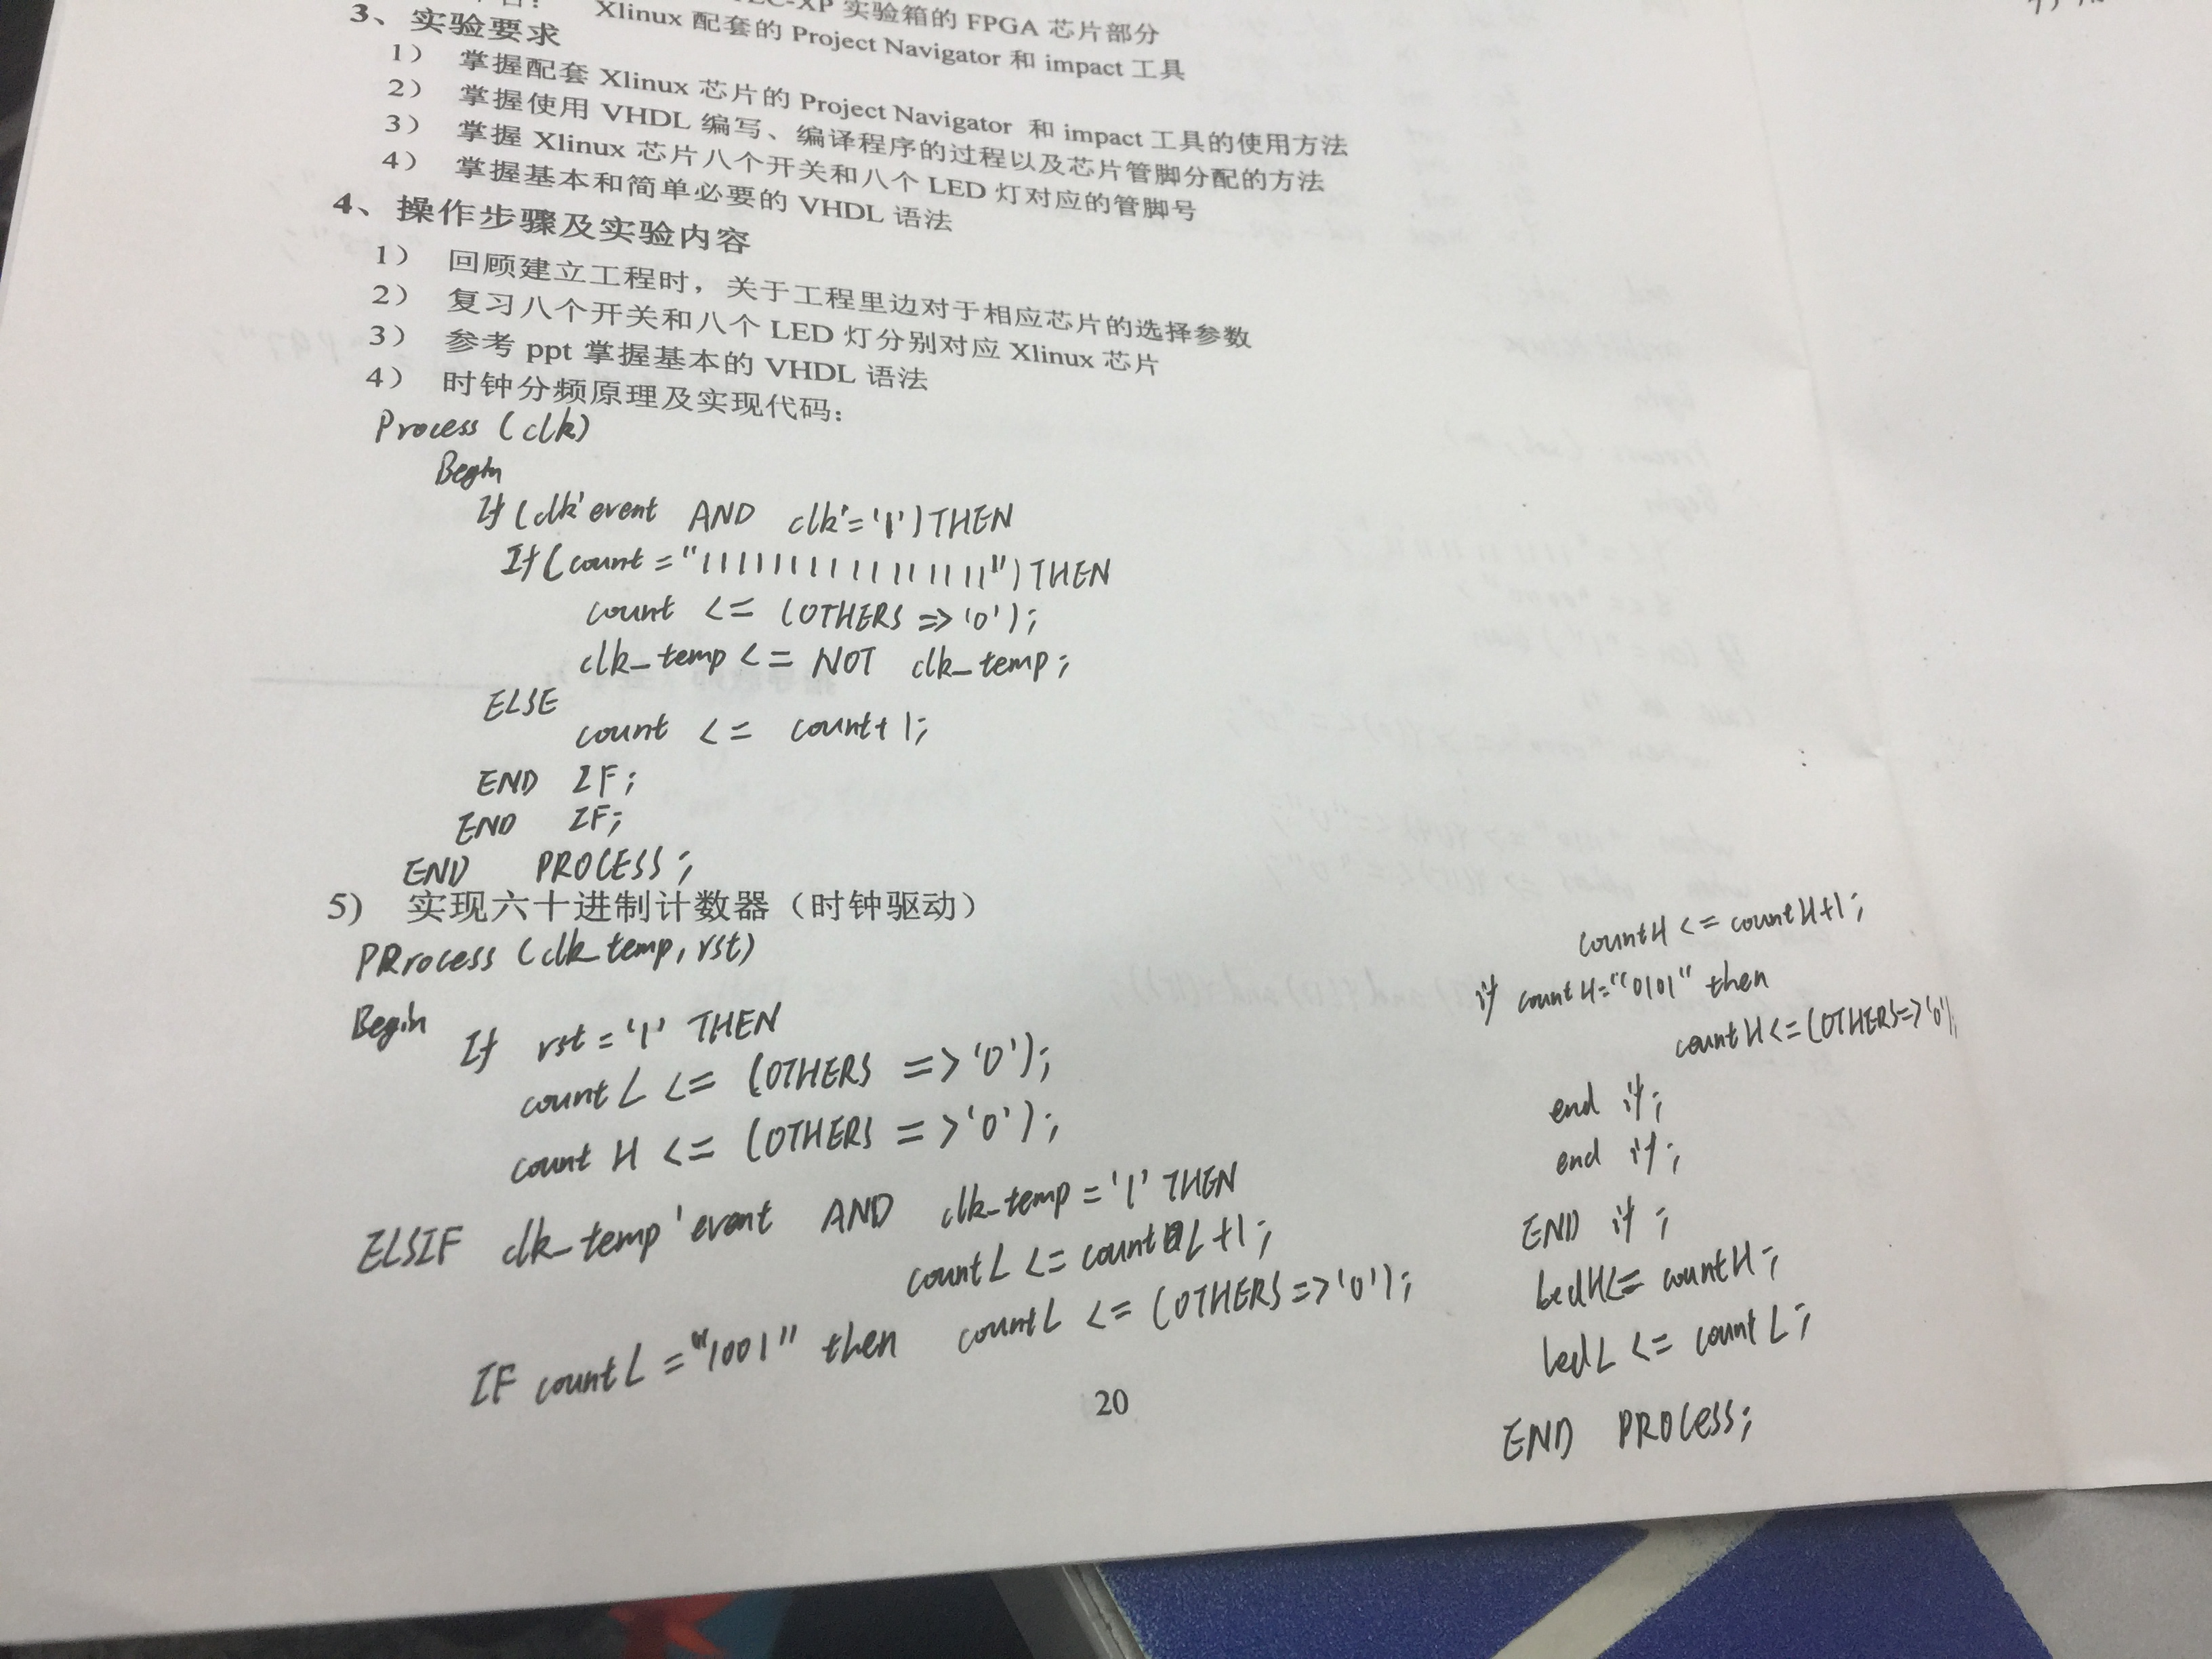 EC-XP 实验箱的 FPGA 芯片部分
Xlinux 配套的 Project Navigator 和 impact 工具
3、实验要求
1） 掌握配套 Xlinux 芯片的 Project Navigator 和 impact 工具的使用方法
2） 掌握使用 VHDL 编写、编译程序的过程以及芯片管脚分配的方法
3） 掌握 Xlinux 芯片八个开关和八个 LED 灯对应的管脚号
4） 掌握基本和简单必要的 VHDL 语法
4、操作步骤及实验内容
1） 回顾建立工程时，关于工程里边对于相应芯片的选择参数
2） 复习八个开关和八个 LED 灯分别对应 Xlinux 芯片
3） 参考 ppt 掌握基本的 VHDL 语法
4） 时钟分频原理及实现代码：
Process (clk)
Begin
If (clk'event AND clk'='1') THEN
If (count = "11111111111111111") THEN
count <= (OTHERS => '0');
clk_temp <= NOT clk_temp;
ELSE
count <= count+1;
END IF;
END IF;
END PROCESS;
5） 实现六十进制计数器（时钟驱动）
PRrocess (clk_temp, rst)
Begin
If rst = '1' THEN
countL <= (OTHERS => '0');
countH <= (OTHERS => '0');
ELSIF clk_temp'event AND clk_temp = '1' THEN
countL <= countL+1;
IF countL = "1001" then countL <= (OTHERS => '0');
countH <= countH+1;
if countH = "0101" then
countH <= (OTHERS => '0');
end if;
end if;
END if;
ledH <= countH;
ledL <= countL;
END PROCESS;
20